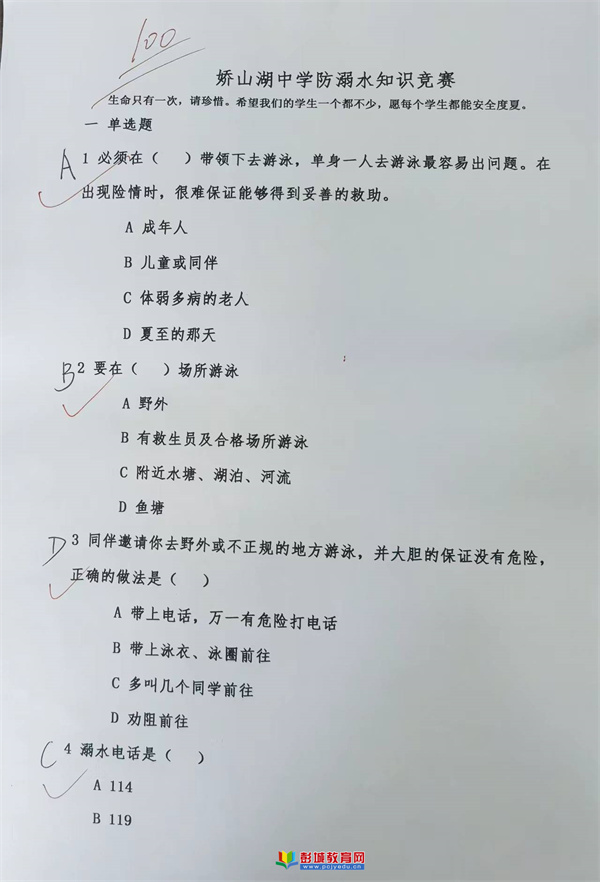 100
娇山湖中学防溺水知识竞赛
生命只有一次，请珍惜。希望我们的学生一个都不少，愿每个学生都能安全度夏。
一 单选题
A 1 必须在（ ）带领下去游泳，单身一人去游泳最容易出问题。在
出现险情时，很难保证能够得到妥善的救助。
A 成年人
B 儿童或同伴
C 体弱多病的老人
D 夏至的那天
B 2 要在（ ）场所游泳
A 野外
B 有救生员及合格场所游泳
C 附近水塘、湖泊、河流
D 鱼塘
D 3 同伴邀请你去野外或不正规的地方游泳，并大胆的保证没有危险，
正确的做法是（ ）
A 带上电话，万一有危险打电话
B 带上泳衣、泳圈前往
C 多叫几个同学前往
D 劝阻前往
C 4 溺水电话是（ ）
A 114
B 119
彭城教育网
www.pojyedu.cn